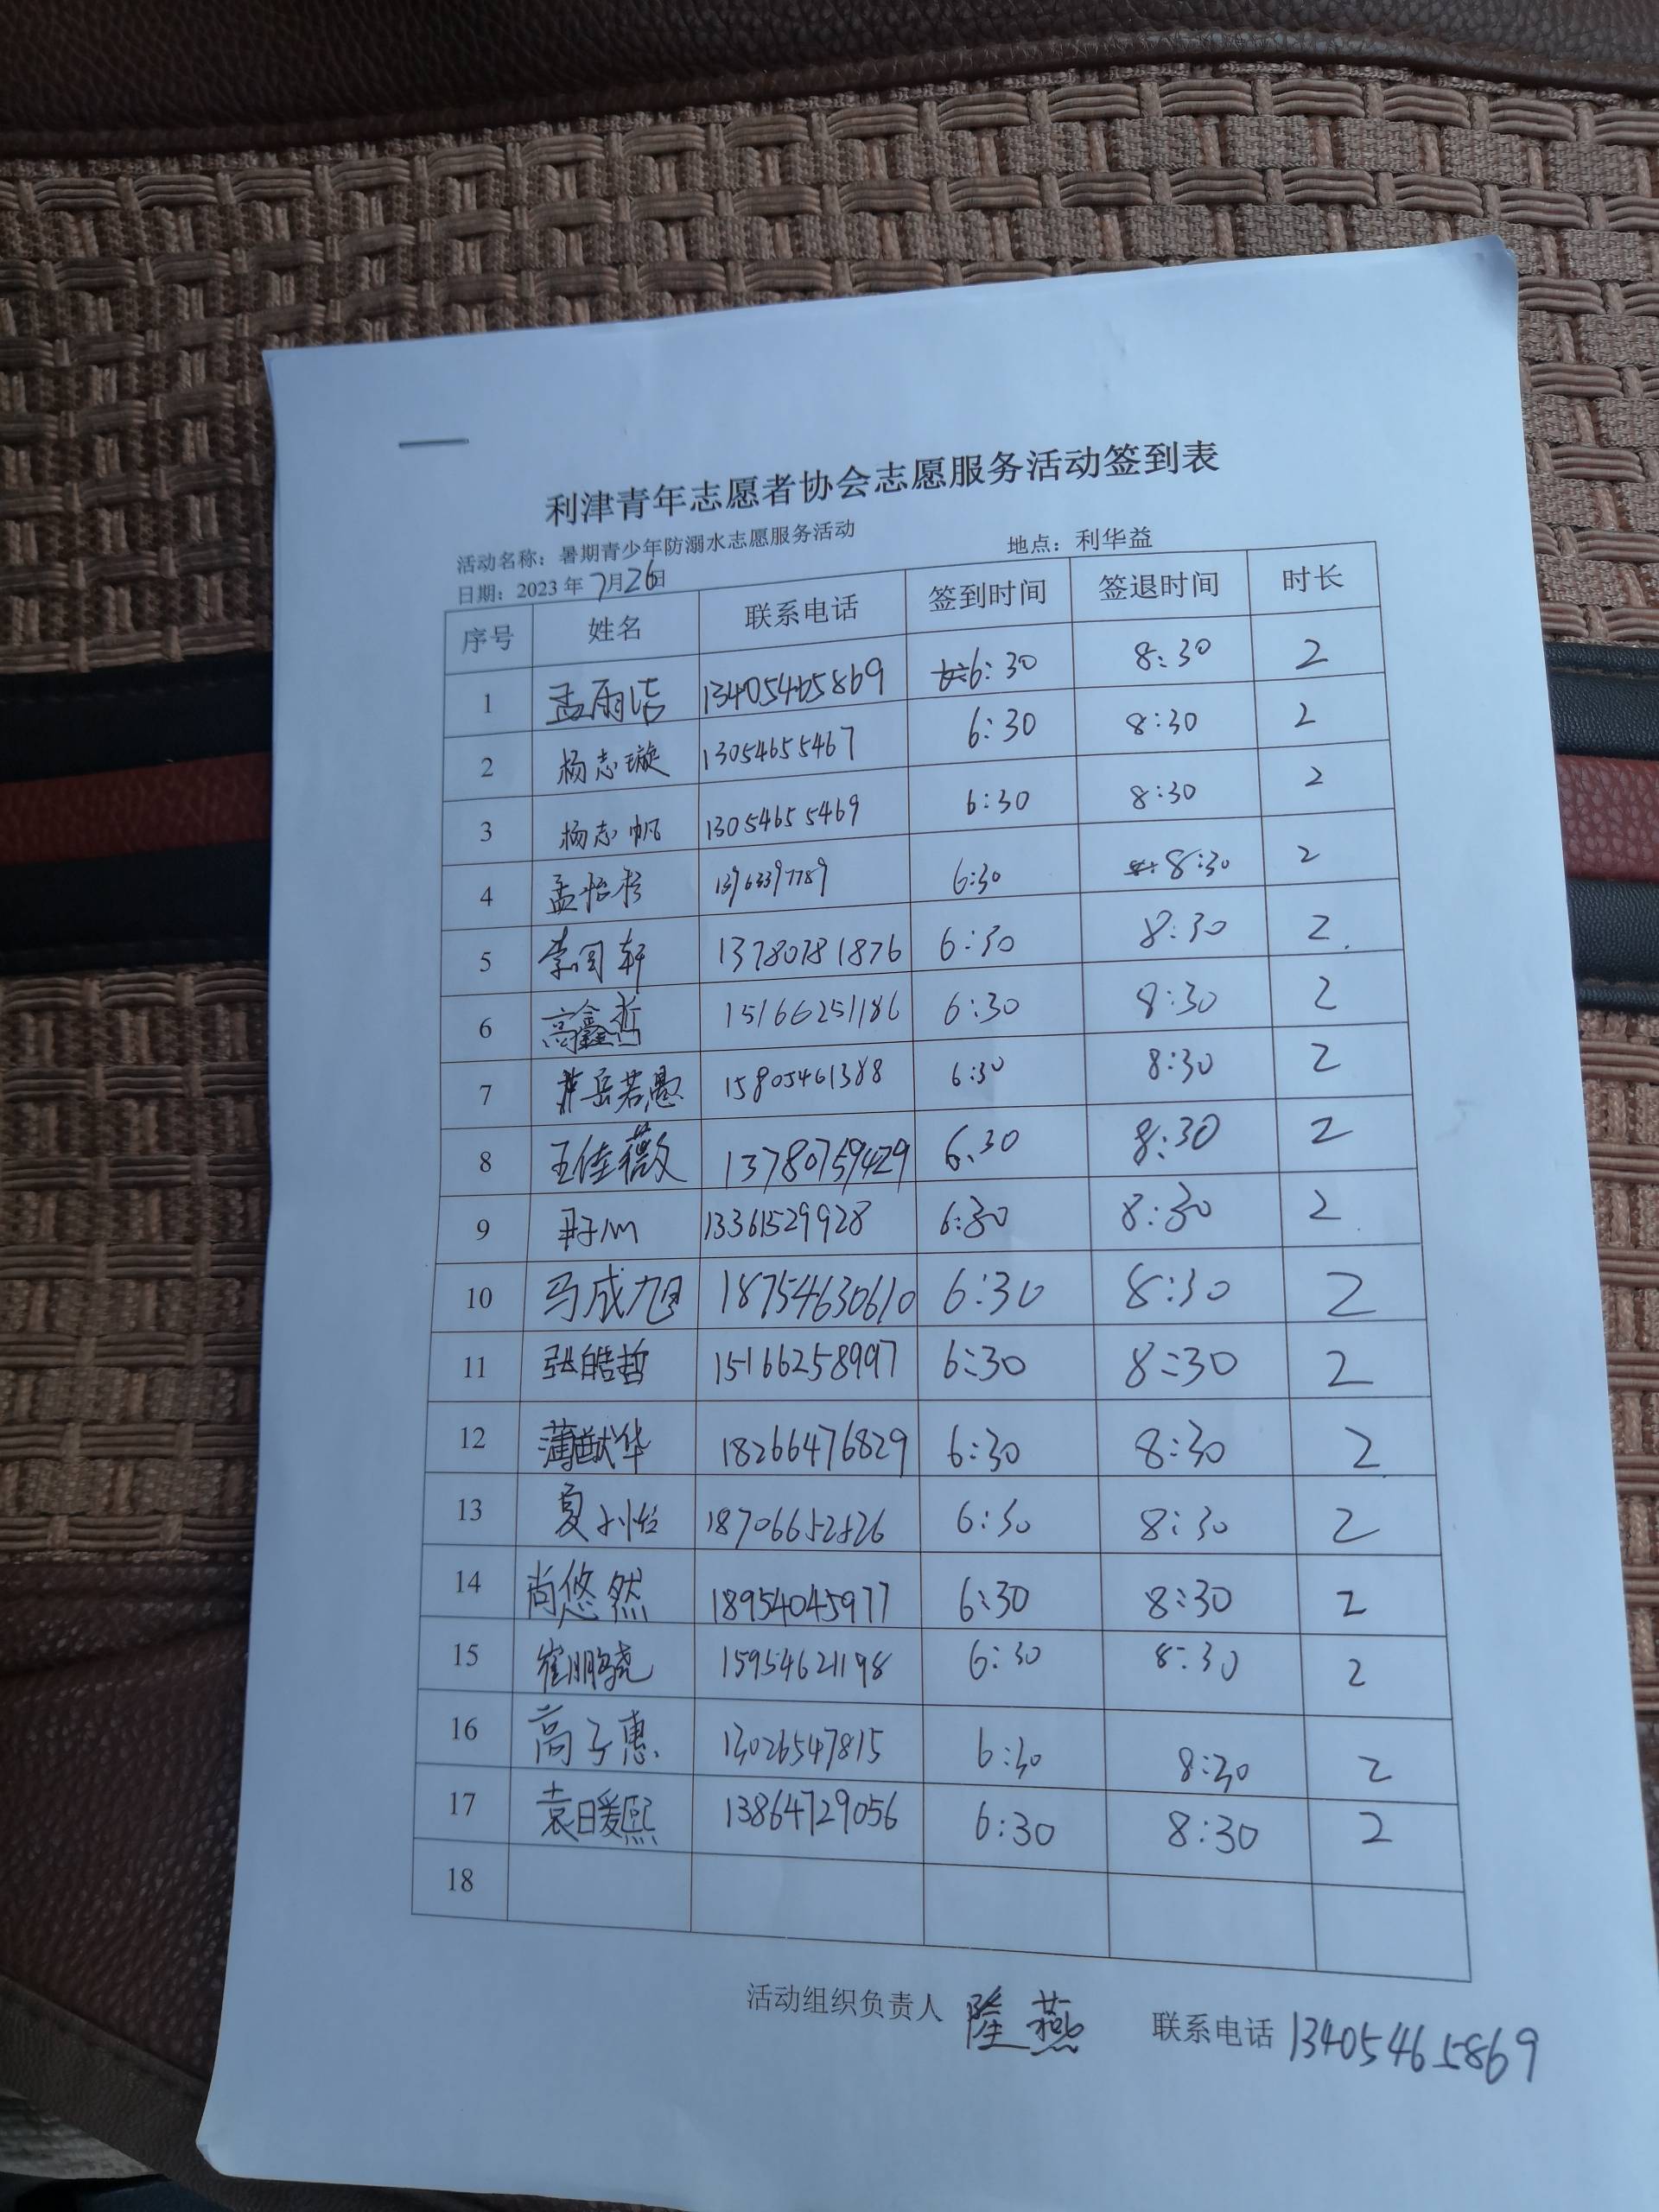 利津青年志愿者协会志愿服务活动签到表
活动名称：暑期青少年防溺水志愿服务活动 地点：利华益
日期：2023年7月26日
序号 姓名 联系电话 签到时间 签退时间 时长
1 孟雨洁 13405465869 6:30 8:30 2
2 杨志璇 13054655467 6:30 8:30 2
3 杨志帆 13054655469 6:30 8:30 2
4 孟怡杉 13963397789 6:30 8:30 2
5 李国轩 13780781876 6:30 8:30 2
6 高鑫哲 15166251186 6:30 8:30 2
7 岳若愚 15805461388 6:30 8:30 2
8 王佳薇 13780759429 6:30 8:30 2
9 13361529928 6:30 8:30 2
10 马成旭 18754630610 6:30 8:30 2
11 张皓哲 15166258997 6:30 8:30 2
12 薄猷华 18266476829 6:30 8:30 2
13 夏 怡 18706652526 6:30 8:30 2
14 尚悠然 18954045977 6:30 8:30 2
15 崔鹏骁 15954621198 6:30 8:30 2
16 高子惠 13026547815 6:30 8:30 2
17 袁暖熙 13864729056 6:30 8:30 2
18
活动组织负责人 隆燕 联系电话 13405465869